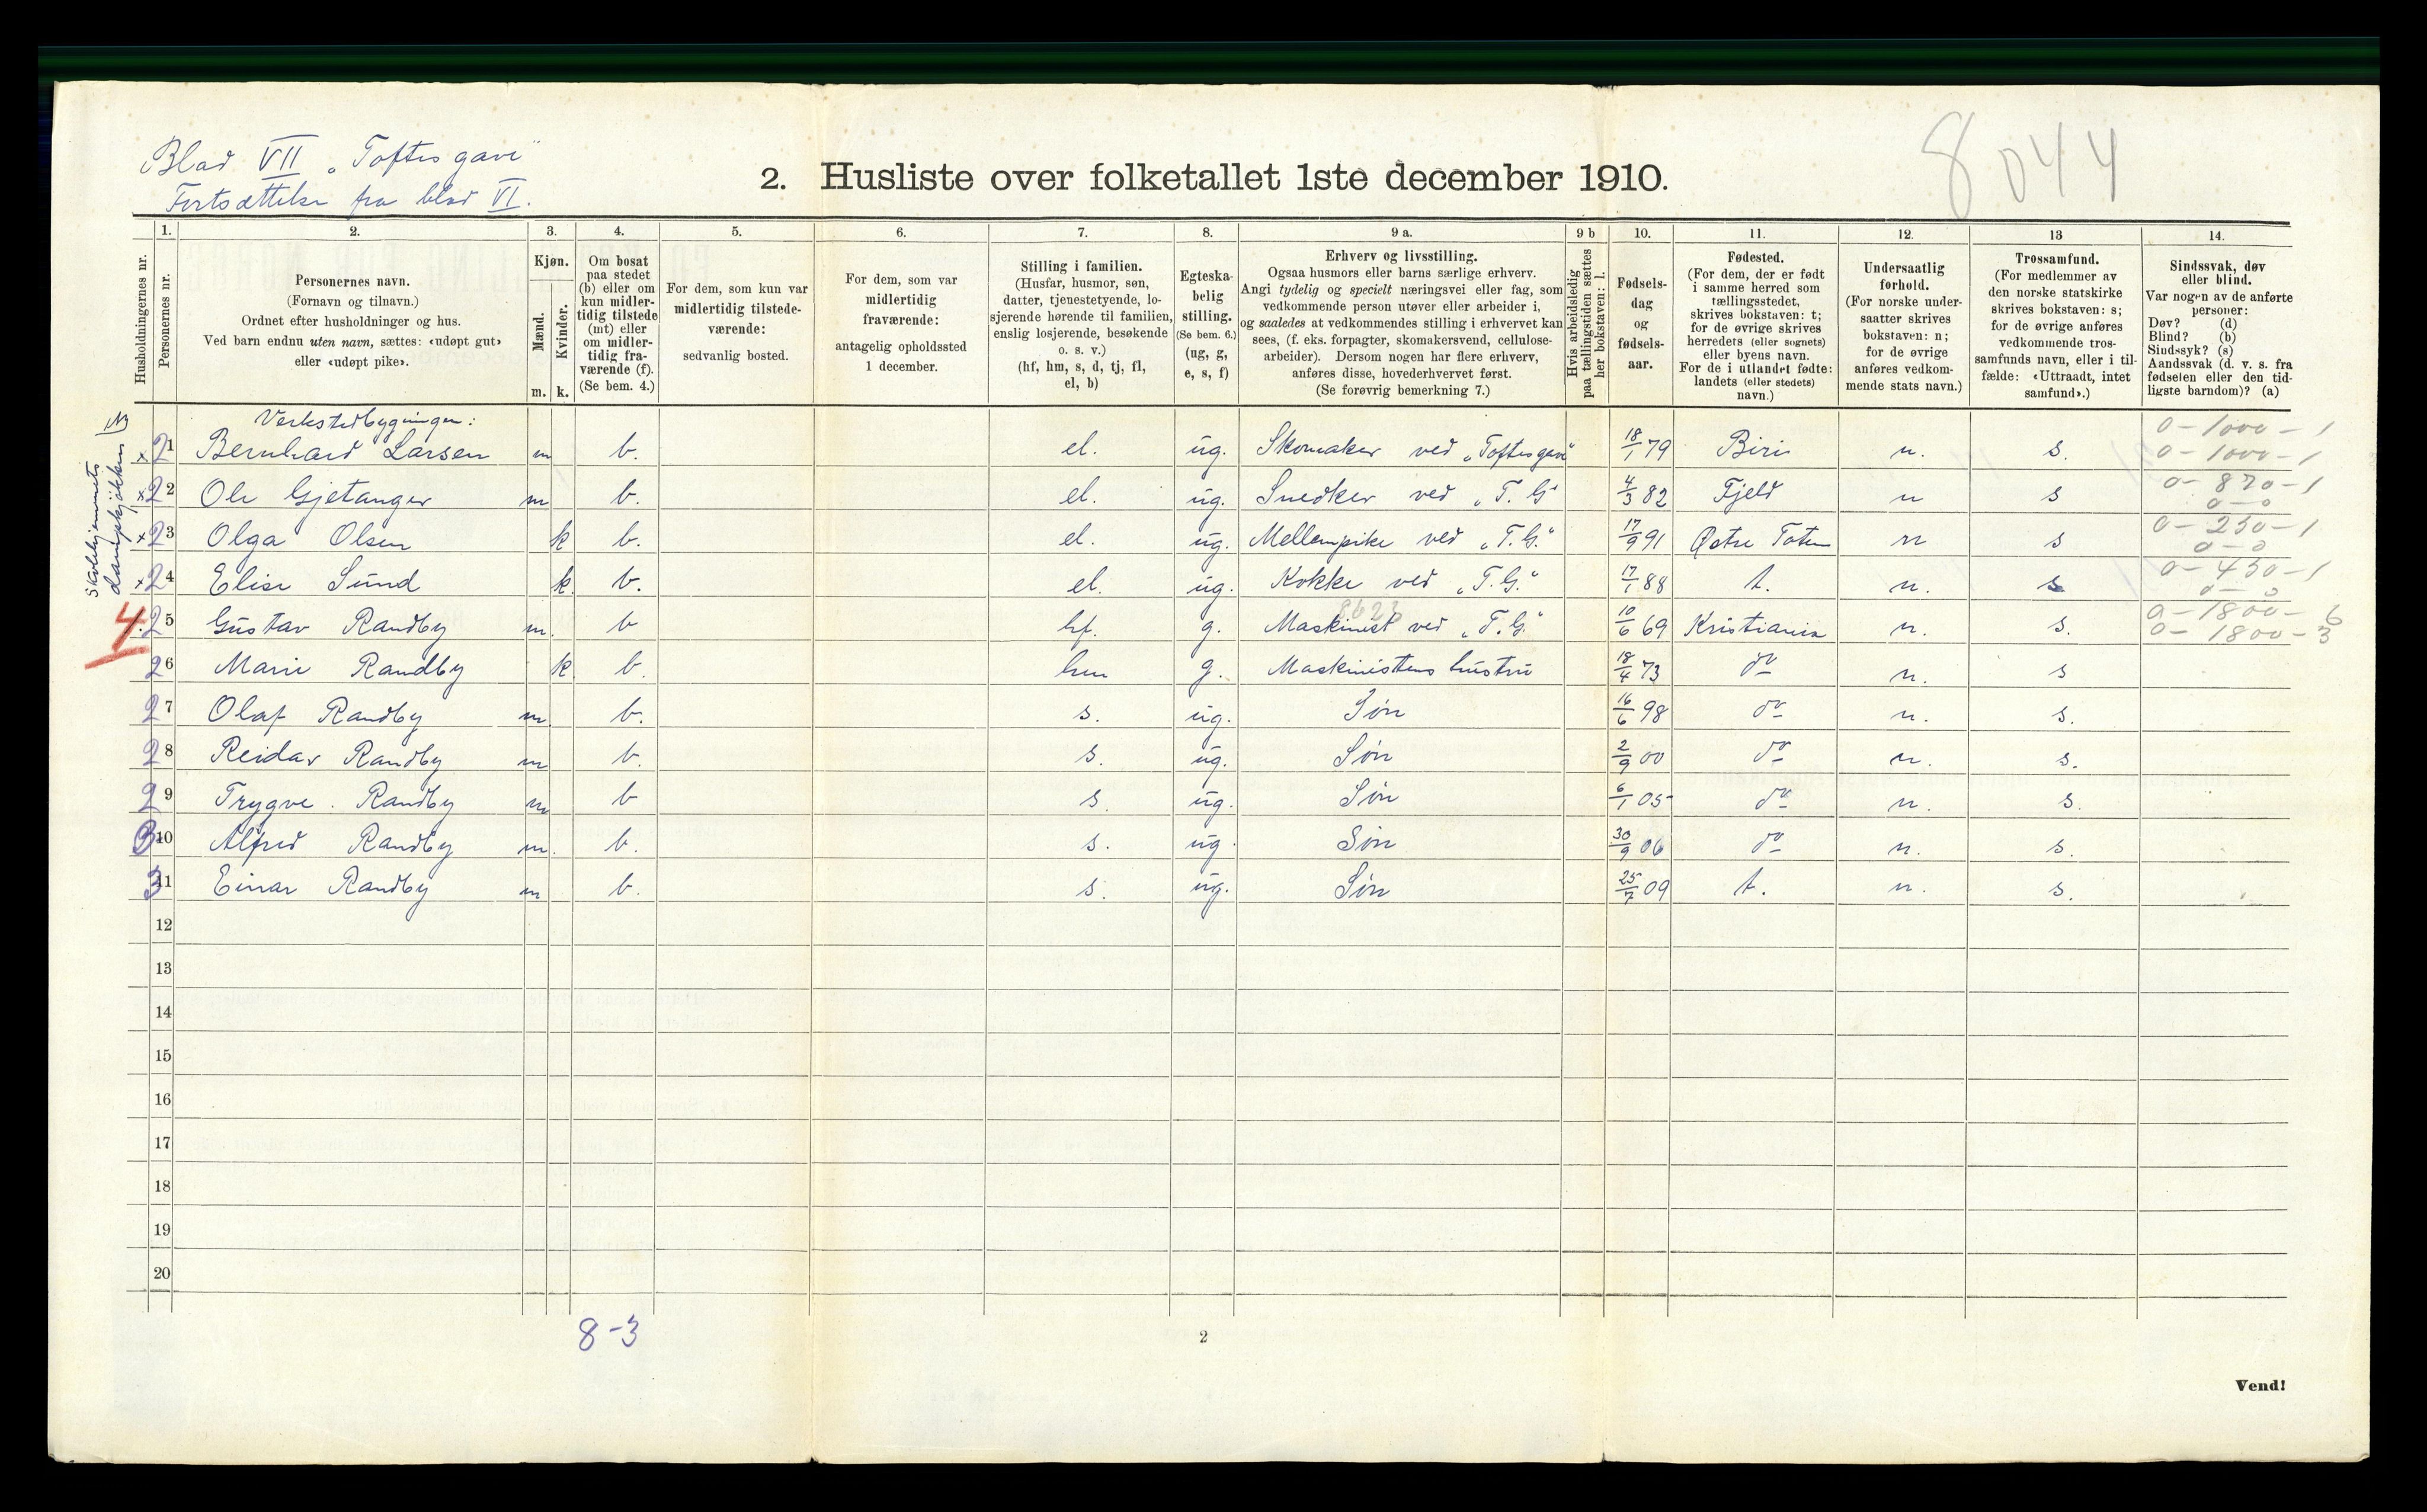 Blad VII „Toftes gave“
Fortsættelse fra blad VI.
2. Husliste over folketallet 1ste december 1910.
8044
Husholdningernes nr.
1. Personernes nr.
2. Personernes navn.
(Fornavn og tilnavn.)
Ordnet efter husholdninger og hus.
Ved barn endnu uten navn, sættes: «udøpt gut»
eller «udøpt pike».
3. Kjøn.
Mænd. m.
Kvinder. k.
4. Om bosat
paa stedet
(b) eller om
kun midler-
tidig tilstede
(mt) eller
om midler-
tidig fra-
værende (f).
(Se bem. 4.)
5. For dem, som kun var
midlertidig tilstede-
værende:
sedvanlig bosted.
6. For dem, som var
midlertidig
fraværende:
antagelig opholdssted
1 december.
7. Stilling i familien.
(Husfar, husmor, søn,
datter, tjenestetyende, lo-
sjerende hørende til familien,
enslig losjerende, besøkende
o. s. v.)
(hf, hm, s, d, tj, fl,
el, b)
8. Egteska-
belig
stilling.
(Se bem. 6.)
(ug, g,
e, s, f)
9 a. Erhverv og livsstilling.
Ogsaa husmors eller barns særlige erhverv.
Angi tydelig og specielt næringsvei eller fag, som
vedkommende person utøver eller arbeider i,
og saaledes at vedkommendes stilling i erhvervet kan
sees, (f. eks. forpagter, skomakersvend, cellulose-
arbeider). Dersom nogen har flere erhverv,
anføres disse, hovederhvervet først.
(Se forøvrig bemerkning 7.)
9 b Hvis arbeidsledig
paa tællingstiden sættes
her bokstaven: l.
10. Fødsels-
dag
og
fødsels-
aar.
11. Fødested.
(For dem, der er født
i samme herred som
tællingsstedet,
skrives bokstaven: t;
for de øvrige skrives
herredets (eller sognets)
eller byens navn.
For de i utlandet fødte:
landets (eller stedets)
navn.)
12. Undersaatlig
forhold.
(For norske under-
saatter skrives
bokstaven: n;
for de øvrige
anføres vedkom-
mende stats navn.)
13 Trossamfund.
(For medlemmer av
den norske statskirke
skrives bokstaven: s;
for de øvrige anføres
vedkommende tros-
samfunds navn, eller i til-
fælde: «Uttraadt, intet
samfund».)
14. Sindssvak, døv
eller blind.
Var nogen av de anførte
personer:
Døv? (d)
Blind? (b)
Sindssyk? (s)
Aandssvak (d. v. s. fra
fødselen eller den tid-
ligste barndom)? (a)
Skolehjemmets
dampkjøkken
Verkstedbygningen:
x 2 1 Bernhard Larsen m b. el. ug. Skomaker ved „Toftesgave“ 18/1 79 Biri n. s. 0-1000-1 0-1000-1
x 2 2 Ole Gjetanger m b. el. ug. Snedker ved „T. G“ 4/3 82 Fjeld n s 0-820-1 0-0
x 2 3 Olga Olsen k b. el. ug. Mellempike ved „T.G.“ 17/9 91 Østre Toten n s 0-250-1 0-0
x 2 4 Elise Sund k. b. el. ug. Kokke ved „T.G.“ 17/1 88 t. n. s 0-450-1 0-0
4. 2 5 Gustav Randby m. b hf. g. Maskinist ved „T.G.“ 10/6 69 Kristiania n. s. 0-1800-6 0-1800-3
2 6 Marie Randby k. b. hm g. Maskinistens hustru 18/4 73 do n. s
2 7 Olaf Randby m. b. s. ug. Søn 16/6 98 do n. s.
2 8 Reidar Randby m b. s. ug. Søn 2/9 00 do n. s.
2 9 Trygve Randby m b s. ug. Søn 6/1 05 do n. s.
3 10 Alfred Randby m. b. s. ug. Søn 30/9 06 do n. s.
3 11 Einar Randby m b. s. ug. Søn 25/7 09 t. n. s.
12
13
14
15
16
17
18
19
20
8-3
2
Vend!